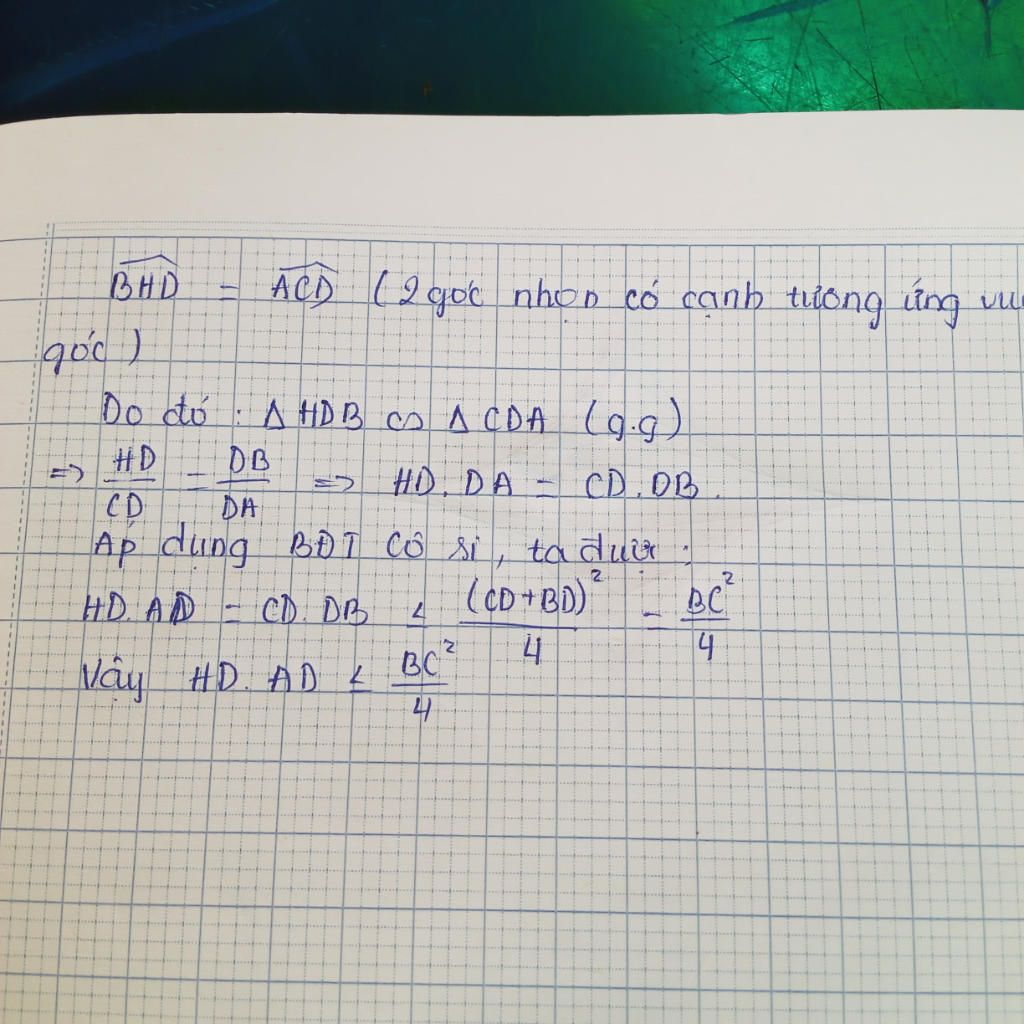 BHD = ACD (2 góc nhọn có cạnh tương ứng
góc)
Do đó : Δ HDB ∽ Δ CDA (g.g)
=> HD/CD = DB/DA => HD. DA = CD. DB.
Áp dụng BĐT Cô si, ta được :
HD. AD = CD. DB ≤ (CD+BD)²/4 = BC²/4
Vậy HD. AD ≤ BC²/4